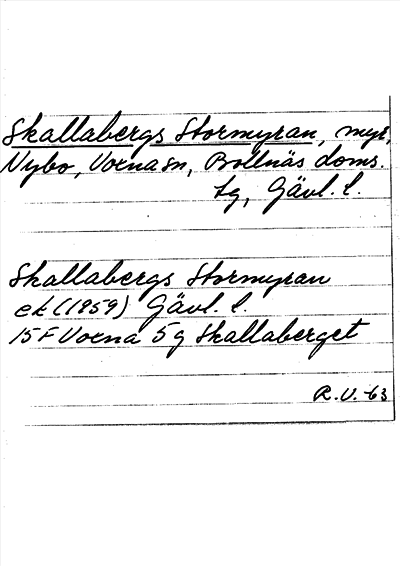 Skallabergs Stormyran, myr,
Nybo, Voxna sn, Bollnäs doms.
tg, Gävl. l.
Skallabergs Stormyran
ek (1959) Gävl. l.
15 F Voxna 5 g Skallaberget
R.V. -63